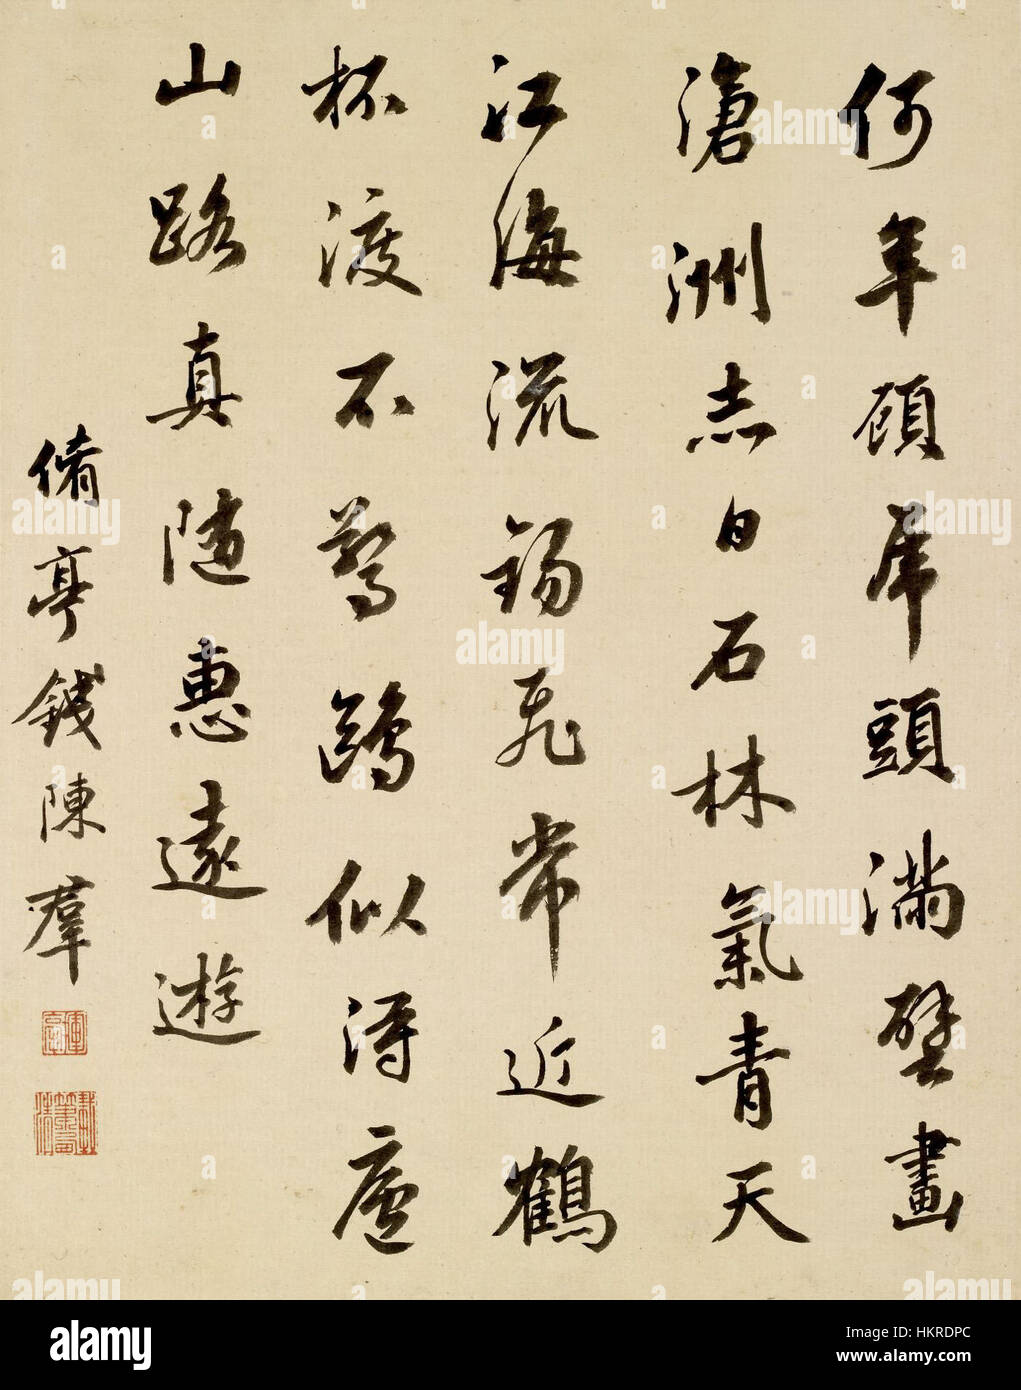 何年顧虎頭滿壁畫
滄洲赤日石林氣青天
江海流錫飛常近鶴
杯渡不驚鷗似得廬
山路真隨惠遠遊
脩亭錢陳羣
alamy
alamy
Image ID: HKRDPC
www.alamy.com